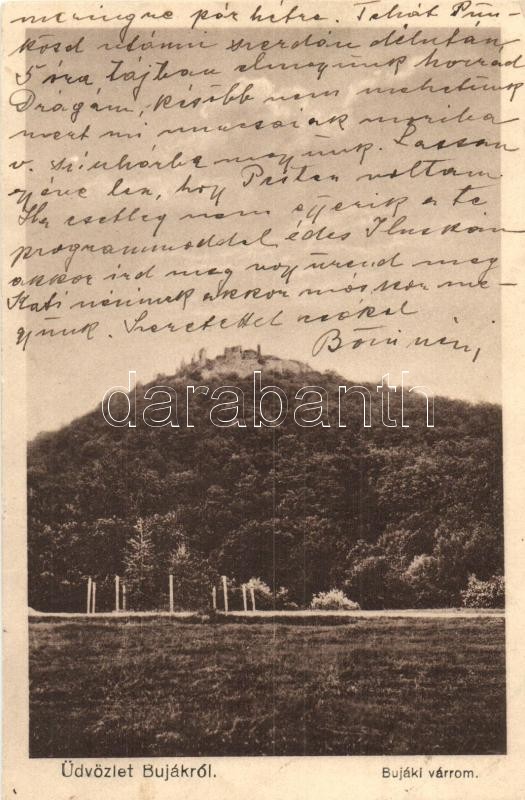 meringre pár hétre. Tehát Pün-
kösd utánni szerdán délután
5 óra tájban elmegyünk hozzád
Drágám, később nem mehetünk
mert mi mucsaiak moziba
v. színházba megyünk. Lassan
éjére lesz, hogy Pesten voltam.
Ha esetleg nem egyezik a te
programmoddal édes Iluskám
akkor írd meg vagy üzend meg
Kati néninek akkor máskor me-
gyünk. Szeretettel csókol
Bözsi néni,
darabanth
Üdvözlet Bujákról.
Bujáki várrom.